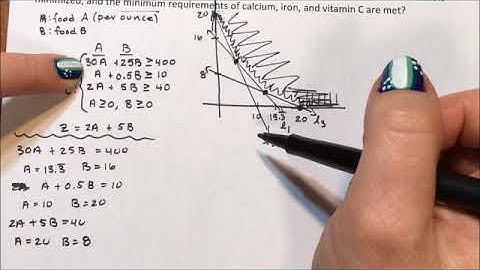 minimized, and the minimum requirements of calcium, iron, and vitamin C are met?
A: food A (per ounce)
B: food B
A B
30A + 25B ≥ 400
A + 0.5B ≥ 10
2A + 5B ≥ 40
A ≥ 0, B ≥ 0
Z = 2A + 5B
30A + 25B = 400
A = 13.3̅ B = 16
A + 0.5B = 10
A = 10 B = 20
2A + 5B = 40
A = 20 B = 8
20
16
8
10 13.3̅ 20
l₁ l₃